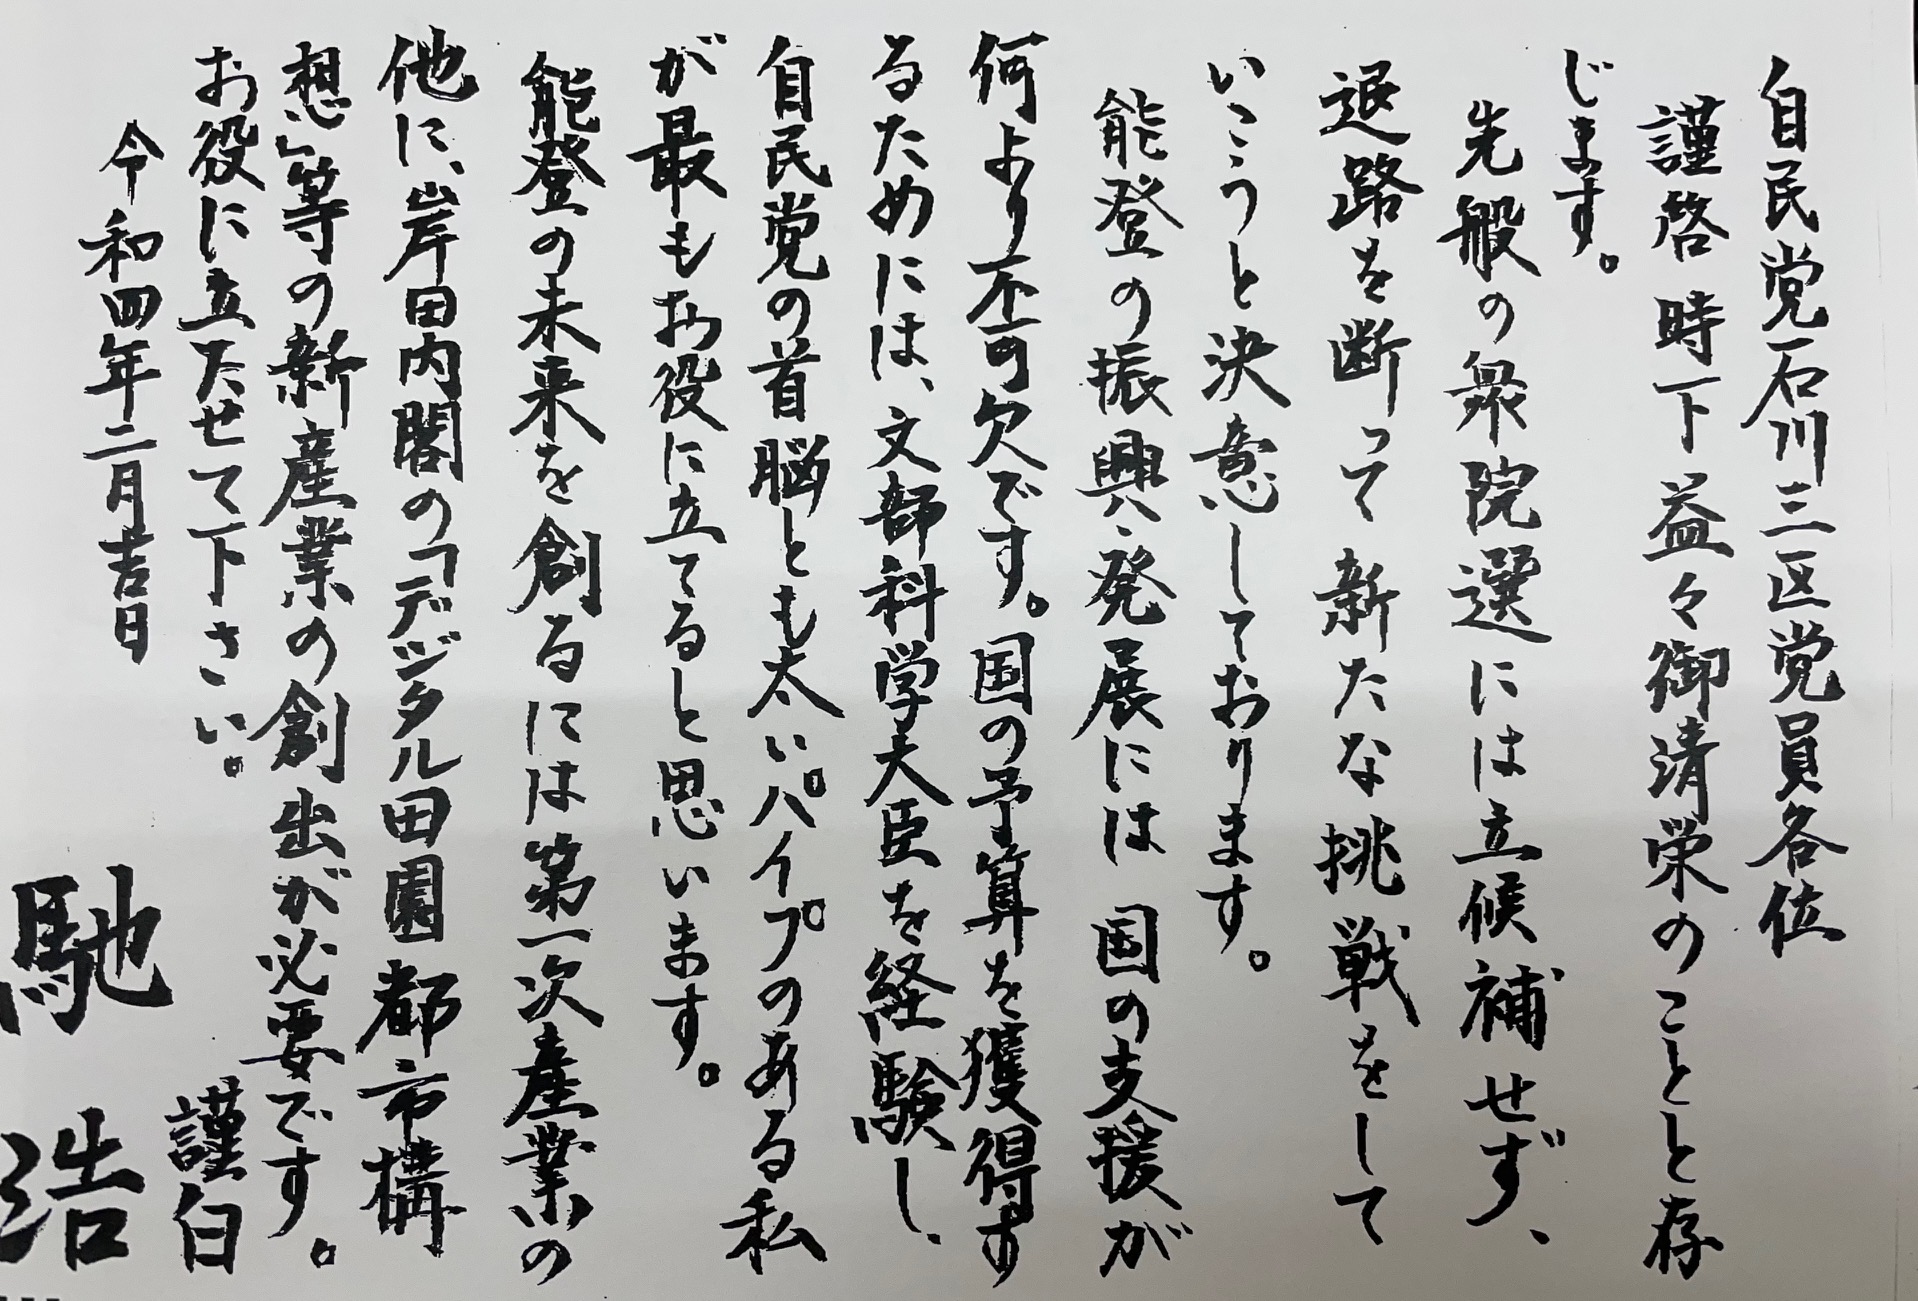 自民党石川三区党員各位
謹啓 時下益々御清栄のことと存
じます。
先般の衆院選には立候補せず、
退路を断って新たな挑戦をして
いこうと決意しております。
能登の振興・発展には国の支援が
何より不可欠です。国の予算を獲得す
るためには、文部科学大臣を経験し、
自民党の首脳とも太いパイプのある私
が最もお役に立てると思います。
能登の未来を創るには第一次産業の
他に、岸田内閣の「デジタル田園都市構
想」等の新産業の創出が必要です。
お役に立たせて下さい。
謹白
令和四年二月吉日
馳 浩